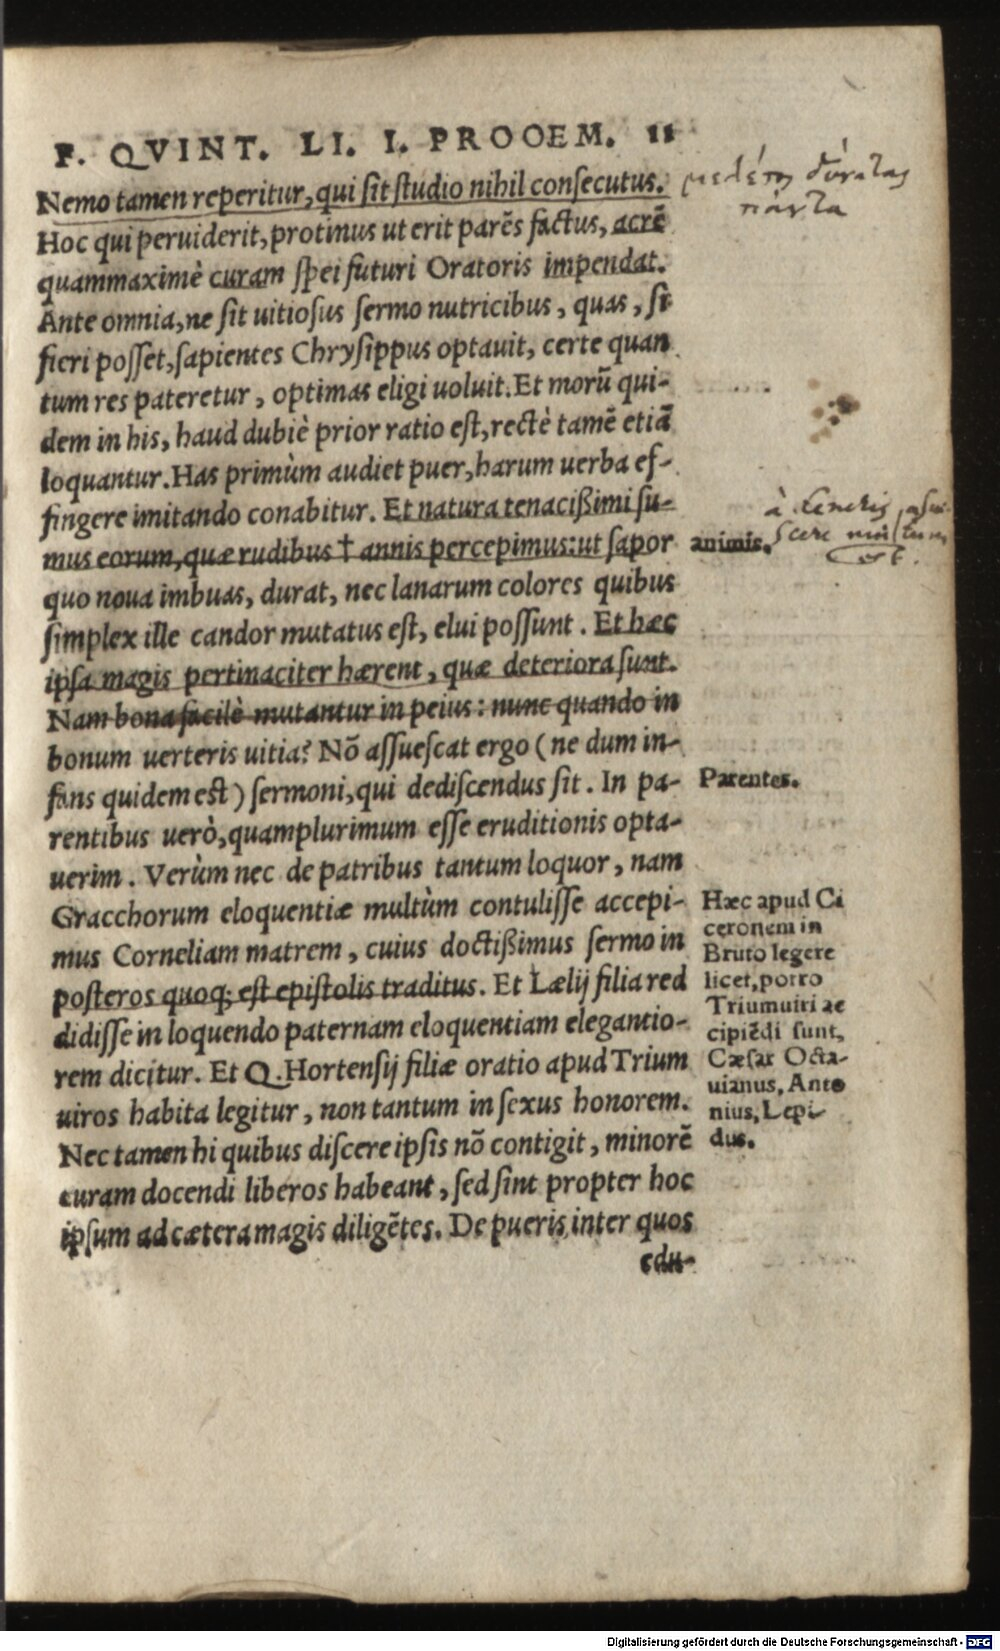 F. QVINT. LI. I. PROOEM. 11
Nemo tamen reperitur, qui sit studio nihil consecutus.
Hoc qui peruiderit, protinus ut erit parẽs factus, acrẽ
quammaximè curam spei futuri Oratoris impendat.
Ante omnia, ne sit uitiosus sermo nutricibus, quas, si
fieri posset, sapientes Chrysippus optauit, certe quan
tum res pateretur, optimas eligi uoluit. Et morũ qui-
dem in his, haud dubiè prior ratio est, rectè tamẽ etiã
loquantur. Has primùm audiet puer, harum uerba ef-
fingere imitando conabitur. Et natura tenacißimi su-
mus eorum, quæ rudibus † annis percepimus: ut sapor
quo noua imbuas, durat, nec lanarum colores quibus
simplex ille candor mutatus est, elui possunt. Et hæc
ipsa magis pertinaciter hærent, quæ deteriora sunt.
Nam bona facilè mutantur in peius: nunc quando in
bonum uerteris uitia? Nõ assuescat ergo (ne dum in-
fans quidem est) sermoni, qui dediscendus sit. In pa-
rentibus uerò, quamplurimum esse eruditionis opta-
uerim. Verùm nec de patribus tantum loquor, nam
Gracchorum eloquentiæ multùm contulisse accepi-
mus Corneliam matrem, cuius doctißimus sermo in
posteros quoq; est epistolis traditus. Et Lælij filia red
didisse in loquendo paternam eloquentiam elegantio-
rem dicitur. Et Q. Hortensij filiæ oratio apud Trium
uiros habita legitur, non tantum in sexus honorem.
Nec tamen hi quibus discere ipsis nõ contigit, minorẽ
curam docendi liberos habeant, sed sint propter hoc
ipsum ad cætera magis diligẽtes. De pueris, inter quos
edu-
μελέτη δύναται
πάντα
à teneris assue-
scere
est.
animis.
Parentes.
Hæc apud Ci
ceronem in
Bruto legere
licet, porro
Triumuiri ac
cipiẽdi sunt,
Cæsar Octa-
uianus, Anto
nius, Lepi-
dus.
Digitalisierung gefördert durch die Deutsche Forschungsgemeinschaft - DFG